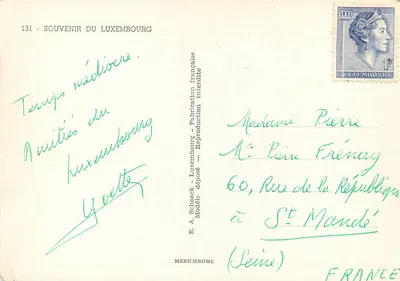 131 - SOUVENIR DU LUXEMBOURG
Temps médiocre.
Amitiés du
Luxembourg
Yvette
E. A. Schaack - Luxembourg - Fabrication française
Modèle déposé — Reproduction interdite
MEXICHROME
LUXEMBOURG
Madame Pierre
Mr Pierre Frénay
60, Rue de la République
à St Mandé
(Seine)
FRANCE